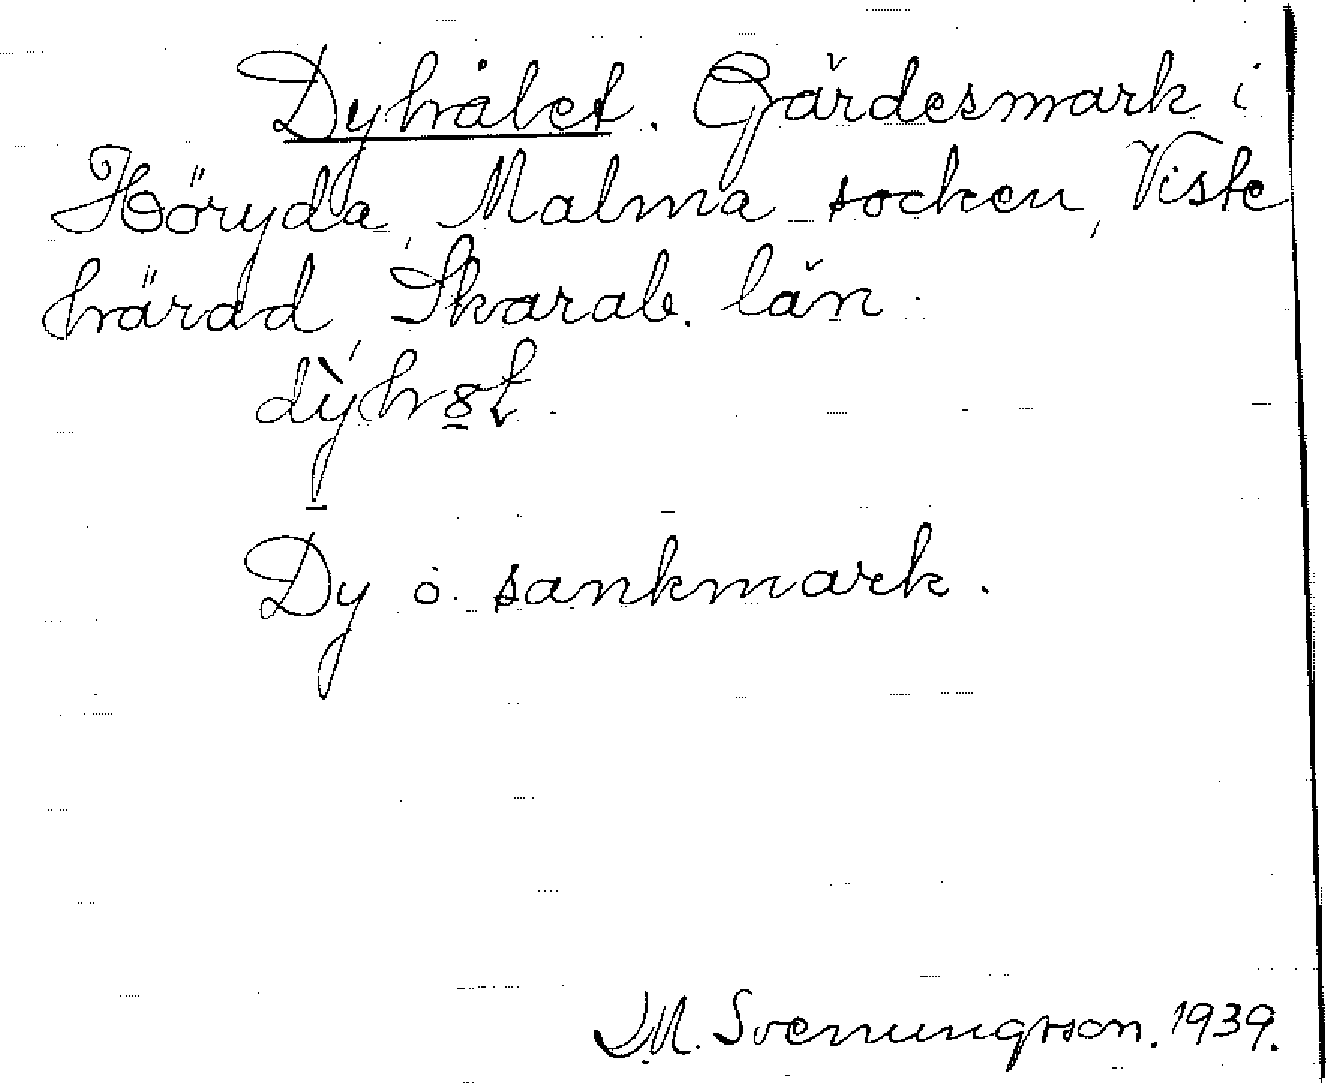 Dyhålet. Gärdesmark i
Höryda, Malma socken, Viste
härad, Skarab. län.
dỳh8t.
Dy o. sankmark.
M. Svenungsson. 1939.